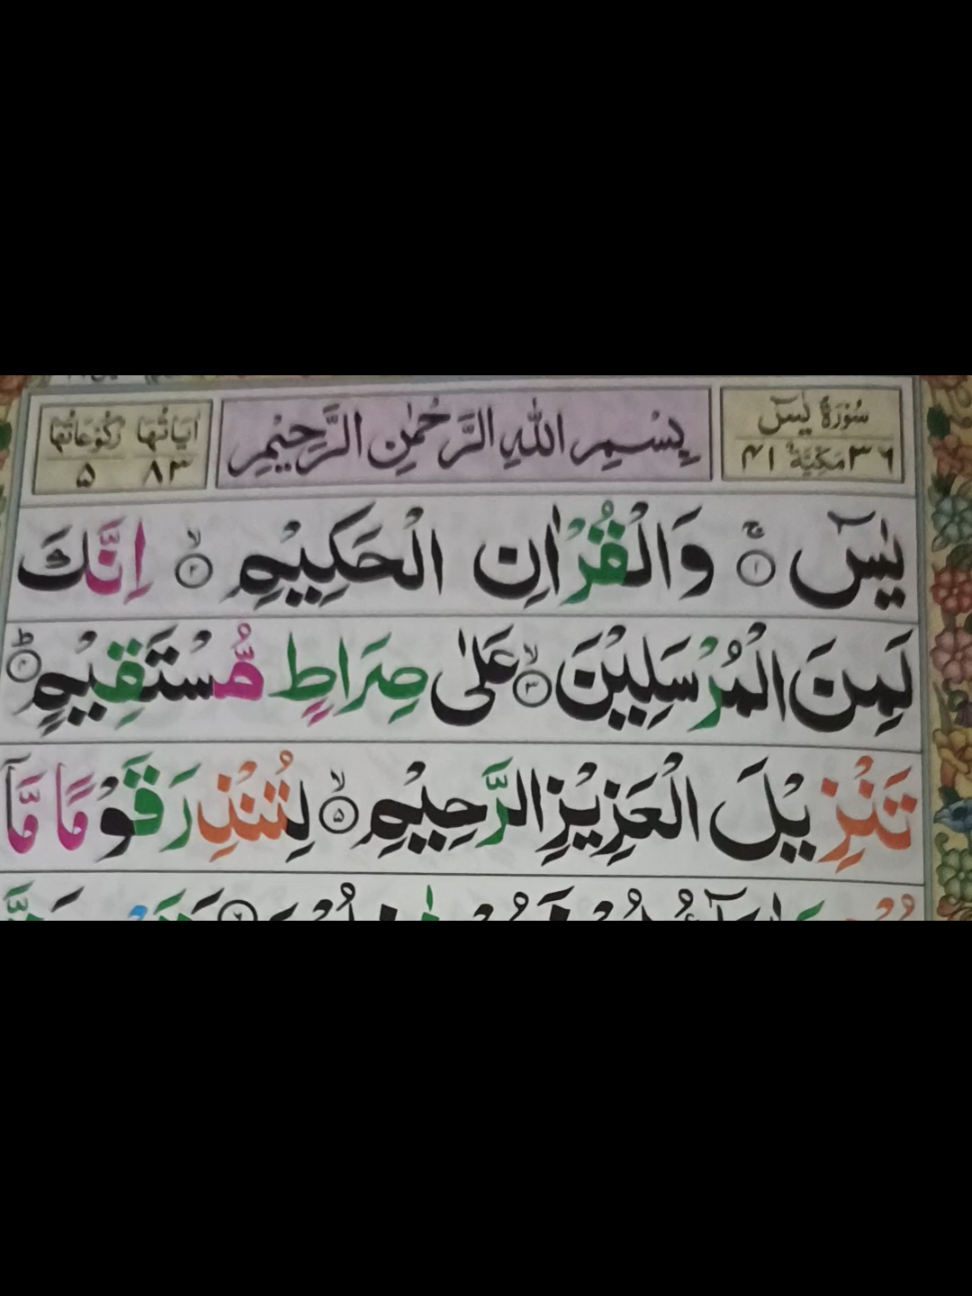 سُوْرَةُ يٰسٓ
٣٦ مَكِّيَّةٌ ٤١
بِسْمِ اللّٰهِ الرَّحْمٰنِ الرَّحِيْمِ
اٰيَاتُهَا ٨٣
رُكُوْعَاتُهَا ٥
يٰسٓ ۚ‏ ١ وَالْقُرْاٰنِ الْحَكِيْمِ ۙ‏ ٢ اِنَّكَ
لَمِنَ الْمُرْسَلِيْنَ ۙ‏ ٣ عَلٰى صِرَاطٍ مُّسْتَقِيْمٍ ؕ‏ ٤
تَنْزِيْلَ الْعَزِيْزِ الرَّحِيْمِ ۙ‏ ٥ لِتُنْذِرَ قَوْمًا مَّاۤ